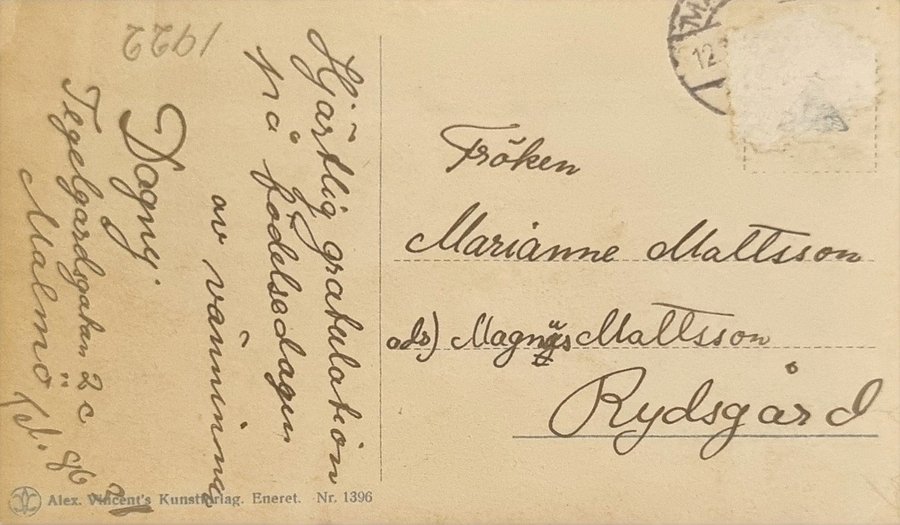 1922
Hjärtlig gratulation
på födelsedagen
av väninna
Dagny
Tegelgårdsgatan 2 c
Malmö
12
Fröken
Marianne Mattsson
adr) Magnus Mattsson
Rydsgård
Alex. Vincent's Kunstforlag. Eneret. Nr. 1396